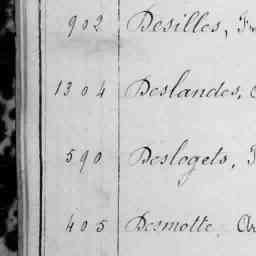 902 Desilles,
1304 Deslandes,
590 Deslogets,
405 Desmotte,